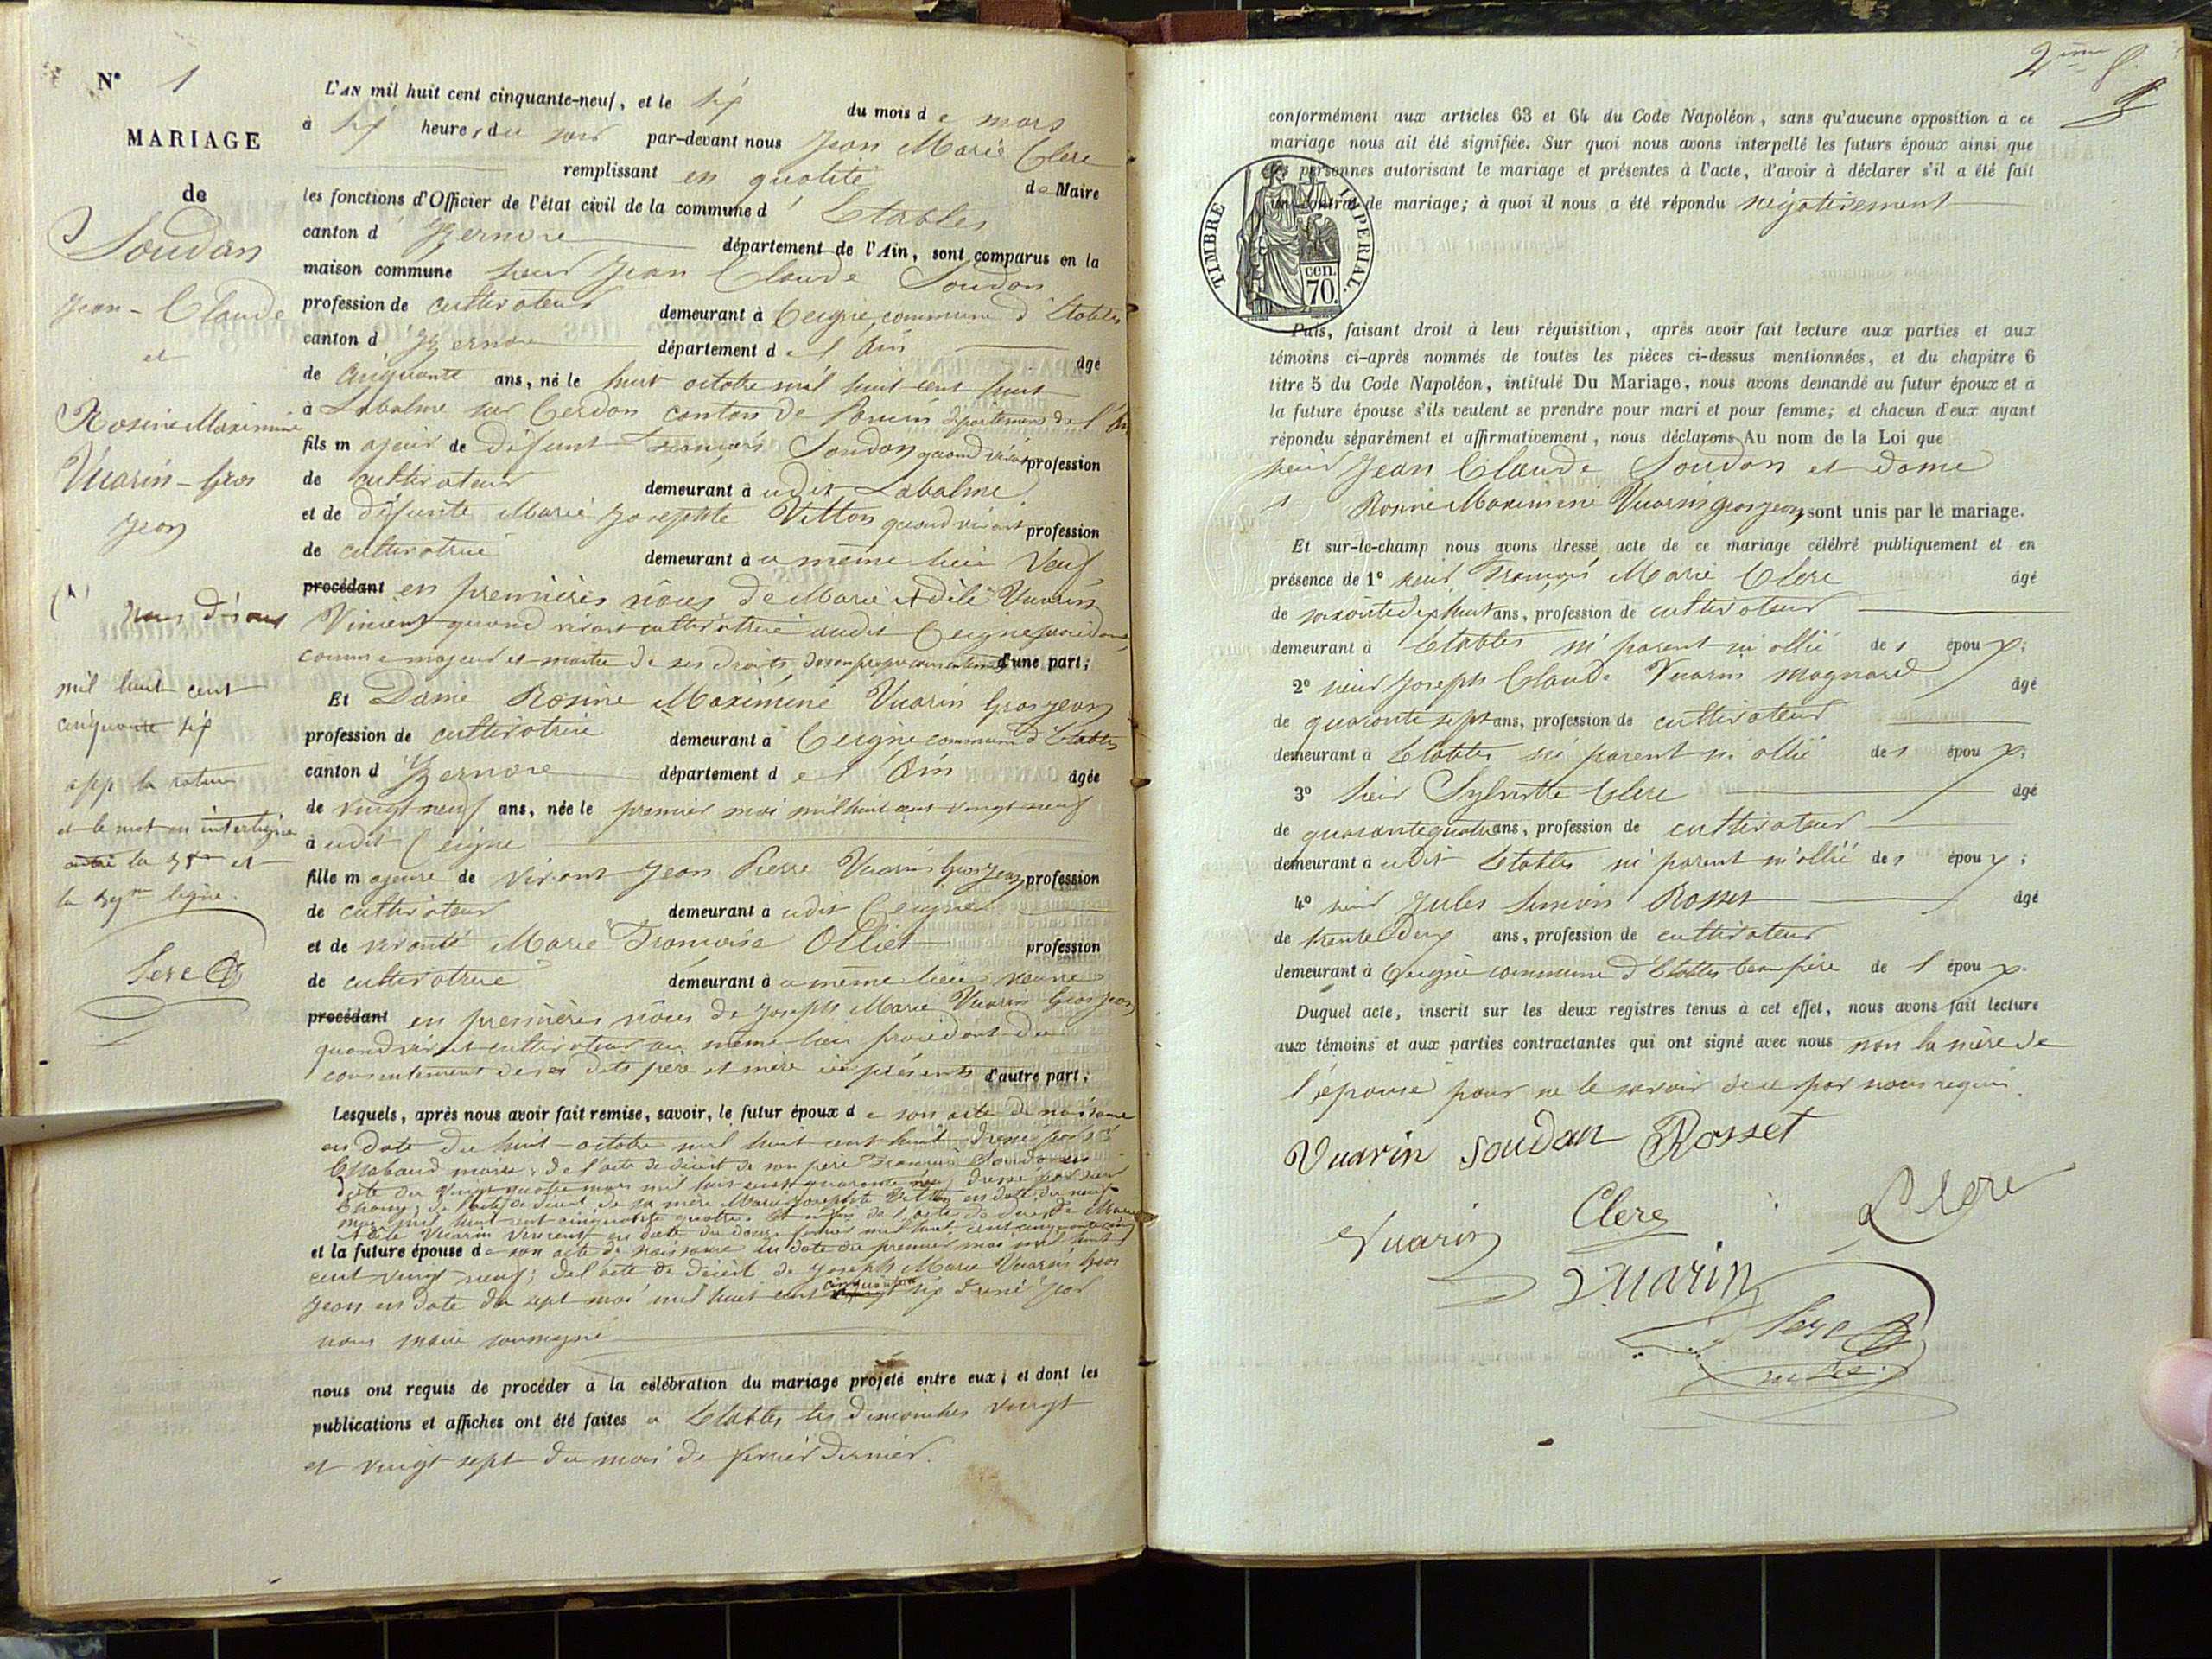 N° 1
MARIAGE
de
Soudan
Jean-Claude
et
Rosine Maximine
Vuarin-Gros
Jean
nous disons
mil huit cent
cinquante six
app la rature
et le mot en interligne
la et
la ligne.
Clerc
L'AN mil huit cent cinquante-neuf, et le six du mois de mars
à six heures du soir par-devant nous Jean Marie Clerc
remplissant en qualité de Maire
les fonctions d'Officier de l'état civil de la commune d' Etables
canton d' Izernore département de l'Ain, sont comparus en la
maison commune sieur Jean Claude Soudan
profession de cultivateur demeurant à Ceigne commune d'Etables
canton d' Izernore département de l'Ain âgé
de cinquante ans, né le huit octobre mil huit cent huit
à Labalme sur Cerdon canton de Poncin département de l'Ain
fils majeur de défunt François Soudan quand vivait profession
de cultivateur demeurant audit Labalme
et de défunte Marie Josephte Vitton quand vivait profession
de cultivatrice demeurant au même lieu veuf
procédant en premières nôces de Marie Adèle Vuarin
Vincent quand vivait cultivatrice audit Ceigne procédant
comme majeur et maître de ses droits de son propre consentement d'une part;
Et Dame Rosine Maximine Vuarin Gros jean
profession de cultivatrice demeurant à Ceigne commune d'Etables
canton d' Izernore département de l'Ain âgée
de vingt neuf ans, née le premier mai mil huit cent vingt neuf
audit Ceigne
fille majeure de vivant Jean Pierre Vuarin Gros Jean profession
de cultivateur demeurant audit Ceigne
et de vivante Marie Françoise Olliet profession
de cultivatrice demeurant au même lieu veuve
procédant en premières nôces de Joseph Marie Vuarin Gros Jean
quand vivait cultivateur au même lieu procédant du
consentement de ses dits père et mère ici présents d'autre part;
Lesquels, après nous avoir fait remise, savoir, le futur époux de son acte de naissance
en date du huit octobre mil huit cent huit dressé par
Chabaud maire; de l'acte de décès de son père François Soudan en
date du vingt quatre mars mil huit cent quarante neuf dressé par sieur
de l'acte de décès de sa mère Marie Josephte Vitton en date du neuf
mars mil huit cent cinquante quatre et enfin de l'acte de décès de Marie
Adèle Vuarin Vincent en date du douze février mil huit cent cinquante cinq
et la future épouse de son acte de naissance en date du premier mai mil huit
cent vingt neuf; de l'acte de décès de Joseph Marie Vuarin Gros
Jean en date du sept mai mil huit cent cinquante six dressé par
nous maire soussigné
nous ont requis de procéder à la célébration du mariage projeté entre eux, et dont les
publications et affiches ont été faites à Etables les dimanches vingt
et vingt sept du mois de février dernier.
2ème
conformément aux articles 63 et 64 du Code Napoléon, sans qu'aucune opposition à ce
mariage nous ait été signifiée. Sur quoi nous avons interpellé les futurs époux ainsi que
les personnes autorisant le mariage et présentes à l'acte, d'avoir à déclarer s'il a été fait
un contrat de mariage; à quoi il nous a été répondu négativement
TIMBRE IMPERIAL.
cen.
70.
Puis, faisant droit à leur réquisition, après avoir fait lecture aux parties et aux
témoins ci-après nommés de toutes les pièces ci-dessus mentionnées, et du chapitre 6
titre 5 du Code Napoléon, intitulé Du Mariage, nous avons demandé au futur époux et à
la future épouse s'ils veulent se prendre pour mari et pour femme; et chacun d'eux ayant
répondu séparément et affirmativement, nous déclarons Au nom de la Loi que
sieur Jean Claude Soudan et dame
Rosine Maximine Vuarin Gros jean sont unis par le mariage.
Et sur-le-champ nous avons dressé acte de ce mariage célébré publiquement et en
présence de 1° sieur François Marie Clerc âgé
de soixante dix huit ans, profession de cultivateur
demeurant à Etables ni parent ni allié des époux;
2° sieur Joseph Claude Vuarin Magnard âgé
de quarante sept ans, profession de cultivateur
demeurant à Etables ni parent ni allié des époux;
3° sieur Sylvestre Clerc âgé
de quarante quatre ans, profession de cultivateur
demeurant audit Etables ni parent ni allié des époux;
4° sieur Jules Simon Rosset âgé
de trente deux ans, profession de cultivateur
demeurant à Ceigne commune d'Etables beau frère de l'époux.
Duquel acte, inscrit sur les deux registres tenus à cet effet, nous avons fait lecture
aux témoins et aux parties contractantes qui ont signé avec nous non la mère de
l'épouse pour ne le savoir de ce par nous requis.
Vuarin Soudan Rosset
Vuarin Clerc Clerc
Vuarin
Clerc